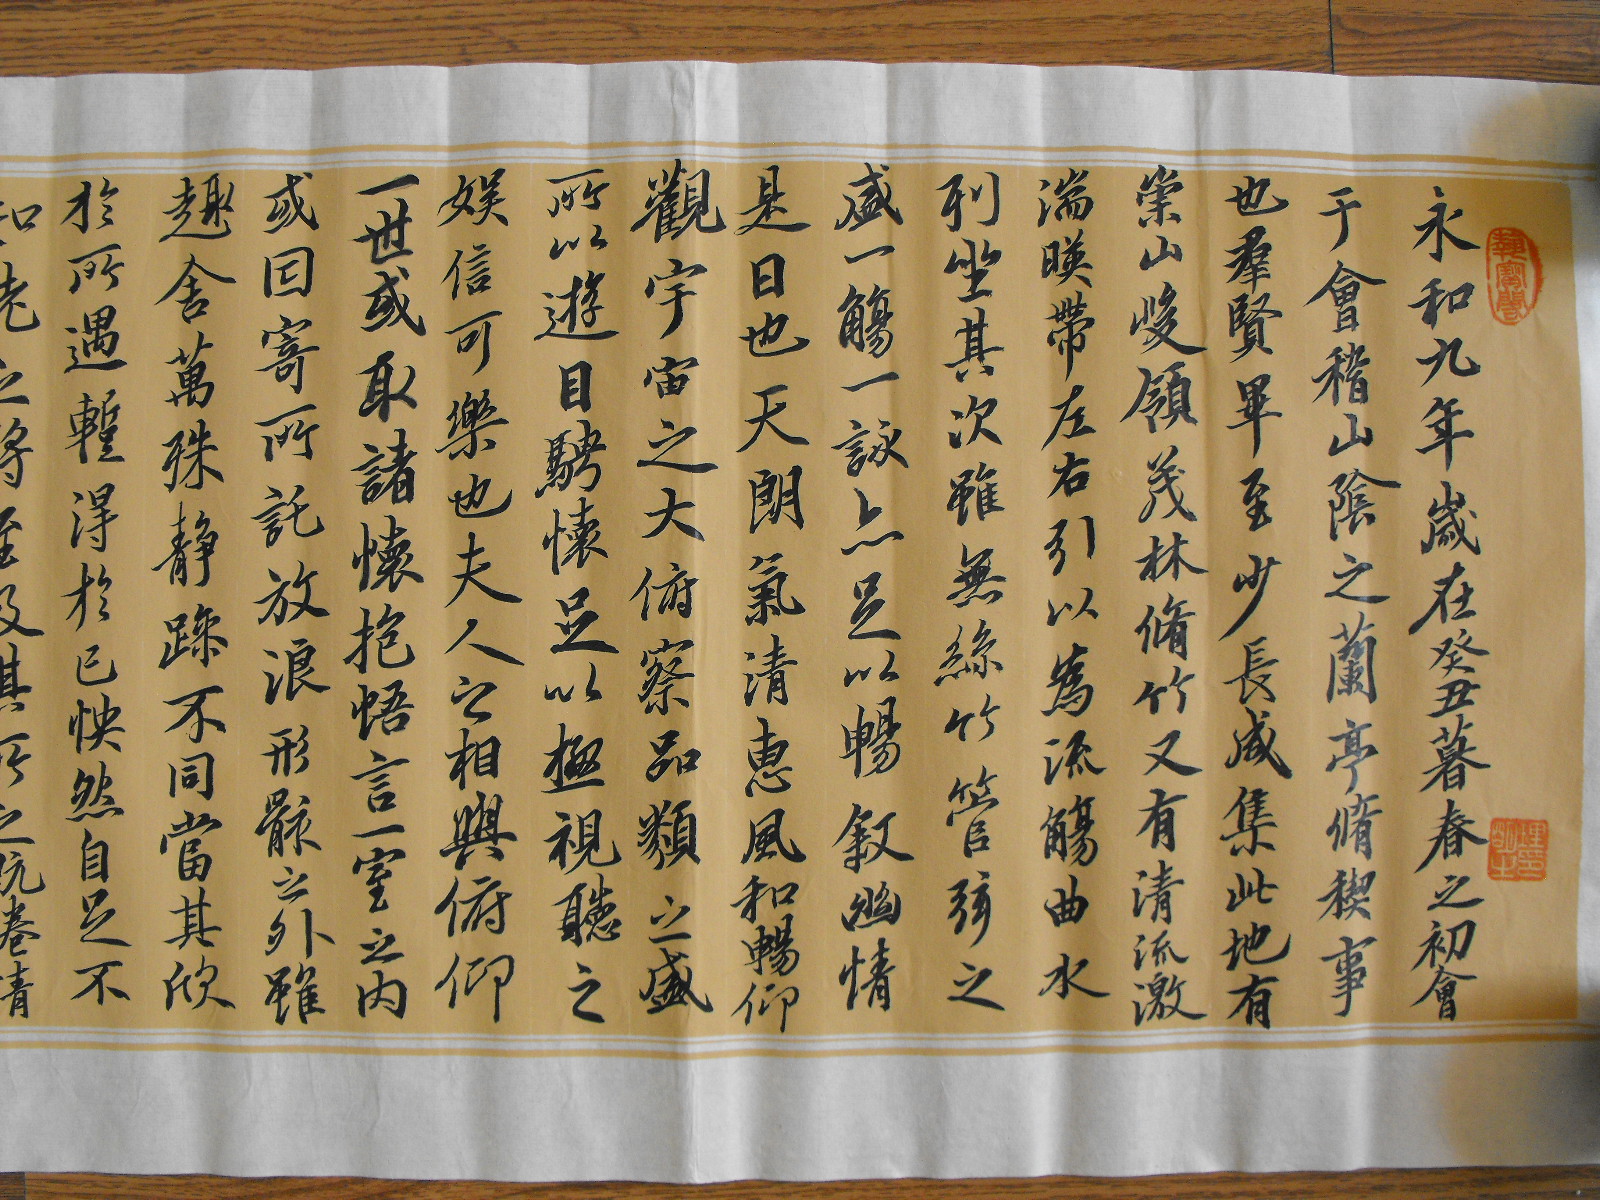 永和九年歲在癸丑暮春之初會
于會稽山陰之蘭亭脩稧事
也羣賢畢至少長咸集此地有
崇山峻領茂林脩竹又有清流激
湍暎帶左右引以為流觴曲水
列坐其次雖無絲竹管弦之
盛一觴一詠亦足以暢敘幽情
是日也天朗氣清惠風和暢仰
觀宇宙之大俯察品類之盛
所以遊目騁懷足以極視聽之
娛信可樂也夫人之相與俯仰
一世或取諸懷抱悟言一室之內
或因寄所託放浪形骸之外雖
趣舍萬殊静躁不同當其欣
於所遇暫得於己怏然自足不
知老之將至及其所之既惓情